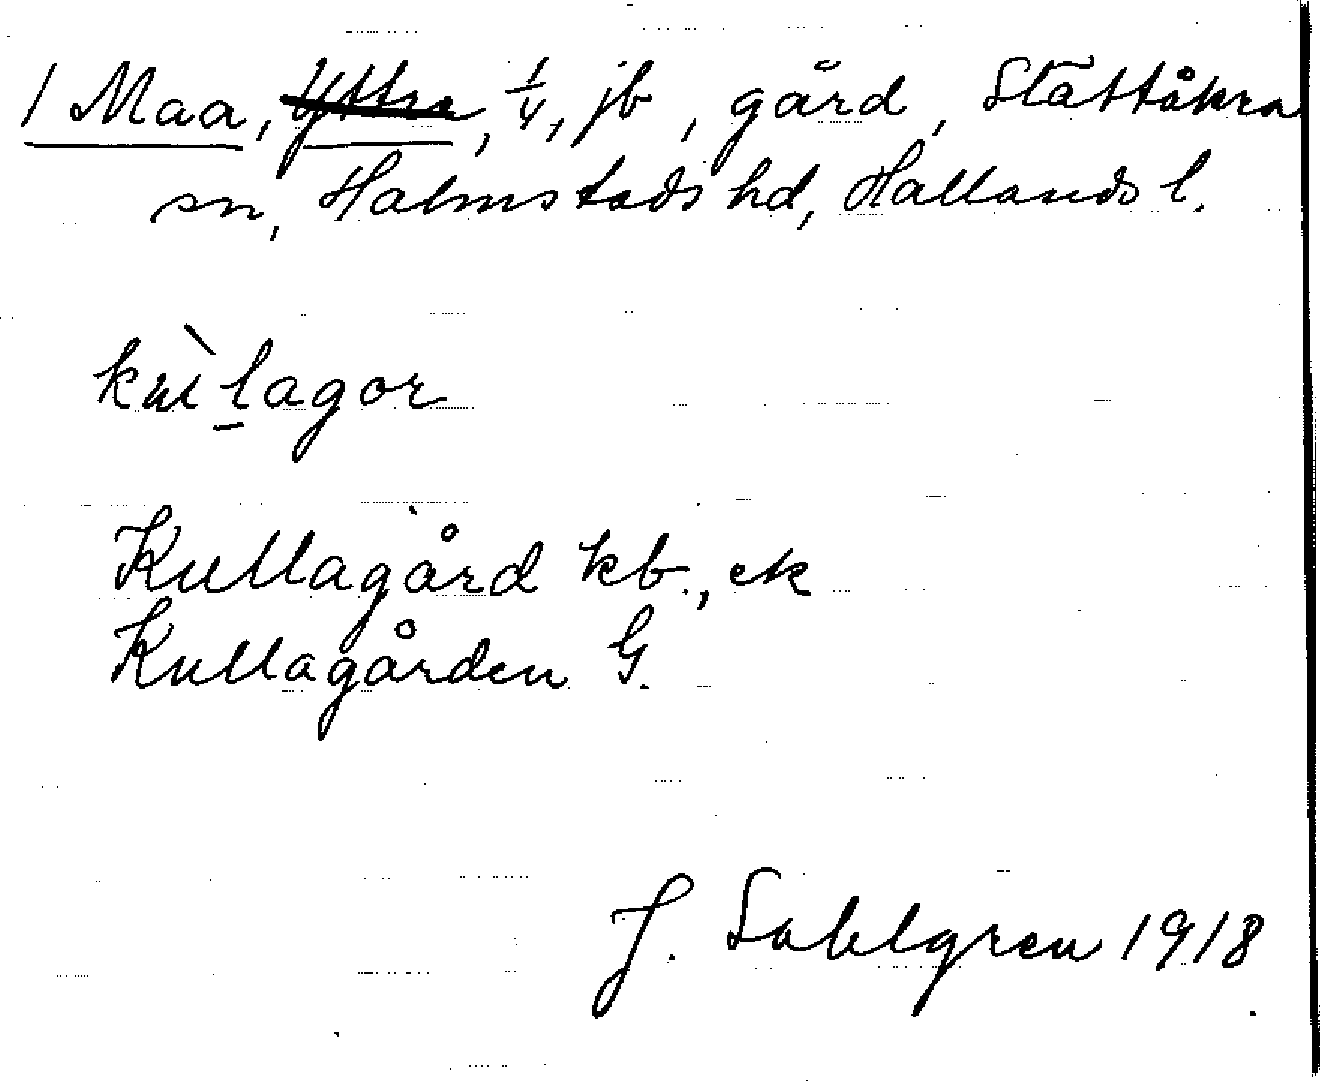 1 Maa, Yttre, 1/4, jb, gård, Slättåkra
sn, Halmstads hd, Hallands l.
kùlagor
Kullagård kb., ek
Kullagården G.
J. Sahlgren 1918